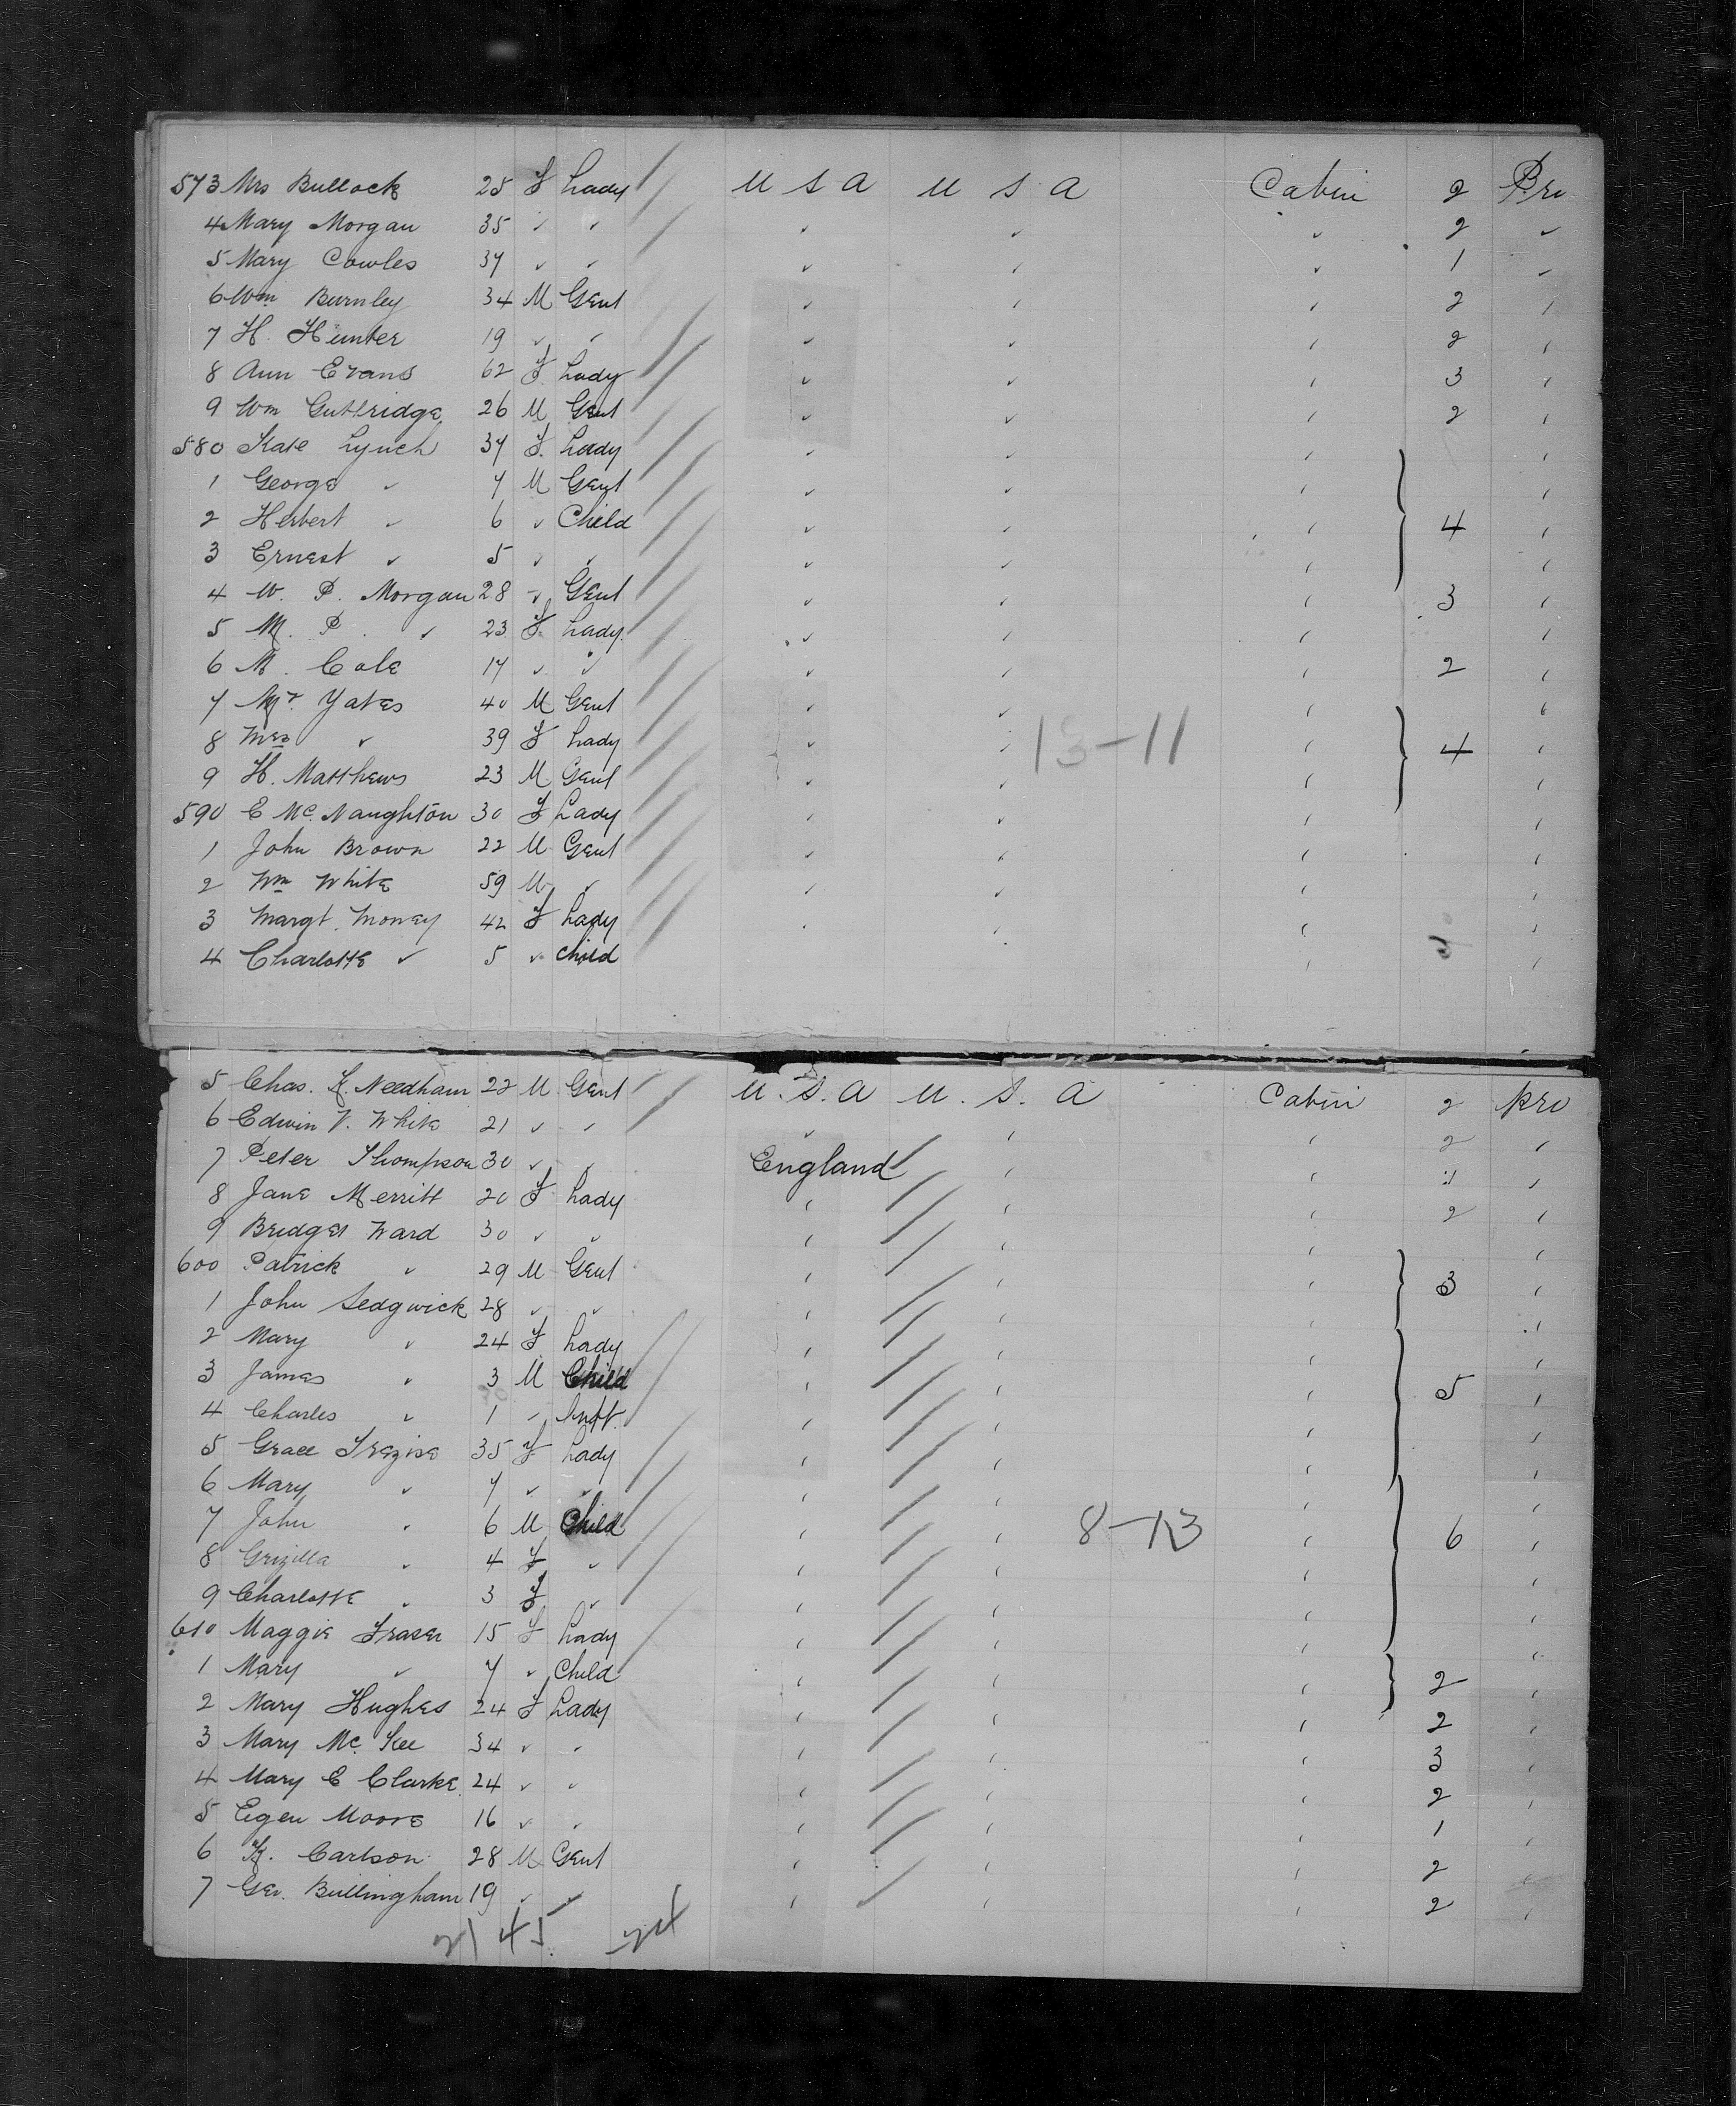 573 Mrs Bullock 25 F Lady U S A U S A Cabin 2 Pro
4 Mary Morgan 35 " " " " " 2 "
5 Mary Cowles 37 " " " " " 1 "
6 Wm Burnley 34 M Gent " " " 2 "
7 H. Hunter 19 " " " " " 2 "
8 Ann Evans 62 F. Lady " " " 3 "
9 Wm Guttridge 26 M Gent " " " 2 "
580 Kate Lynch 37 F. Lady " " " "
1 George " 7 M Gent " " " "
2 Herbert " 6 " Child " " " 4 "
3 Ernest " 5 " " " " " "
4 W. P. Morgan 28 " Gent " " " 3 "
5 M. P. " 23 F. Lady " " " "
6 M. Cole 17 " " " " " 2 "
7 Mr. Yates 40 M Gent " " " "
8 Mrs " 39 F Lady " " 13-11 " 4 "
9 H. Matthews 23 M Gent " " " "
590 E Mc. Naughton 30 F Lady " " " "
1 John Brown 22 M Gent " " " "
2 Wm White 59 M " " " " "
3 Margt. Money 42 F Lady " " " "
4 Charlotte " 5 " Child " "
5 Chas. K. Needham 22 M Gent U. S. A U. S. A Cabin 2 pro
6 Edwin V. White 21 " " " " " 2 "
7 Peter Thompson 30 " " England " " "
8 Jane Merritt 20 F Lady " " " 2 "
9 Bridget Ward 30 " " " " " "
600 Patrick " 29 M Gent " " " 3 "
1 John Sedgwick 28 " " " " " "
2 Mary " 24 F Lady " " " "
3 James " 3 M Child " " " 5 "
4 Charles " 1 " Inft. " " " "
5 Grace Trezise 35 F Lady " " " "
6 Mary " 7 " " " " " "
7 John " 6 M Child " " 8-13 " 6 "
8 Grizilla " 4 F " " " " "
9 Charlotte " 3 F " " " " "
610 Maggie Fraser 15 F Lady " " " "
1 Mary " 7 " Child " " " 2 "
2 Mary Hughes 24 F Lady " " " 2 "
3 Mary Mc. Kee 34 " " " " " 3 "
4 Mary E Clarke 24 " " " " 2 "
5 Egen Moore 16 " " " " " 1 "
6 K. Carlson 28 M Gent " " " 2 "
7 Geo. Bullingham 19 " " " " " 2 "
21 45 24